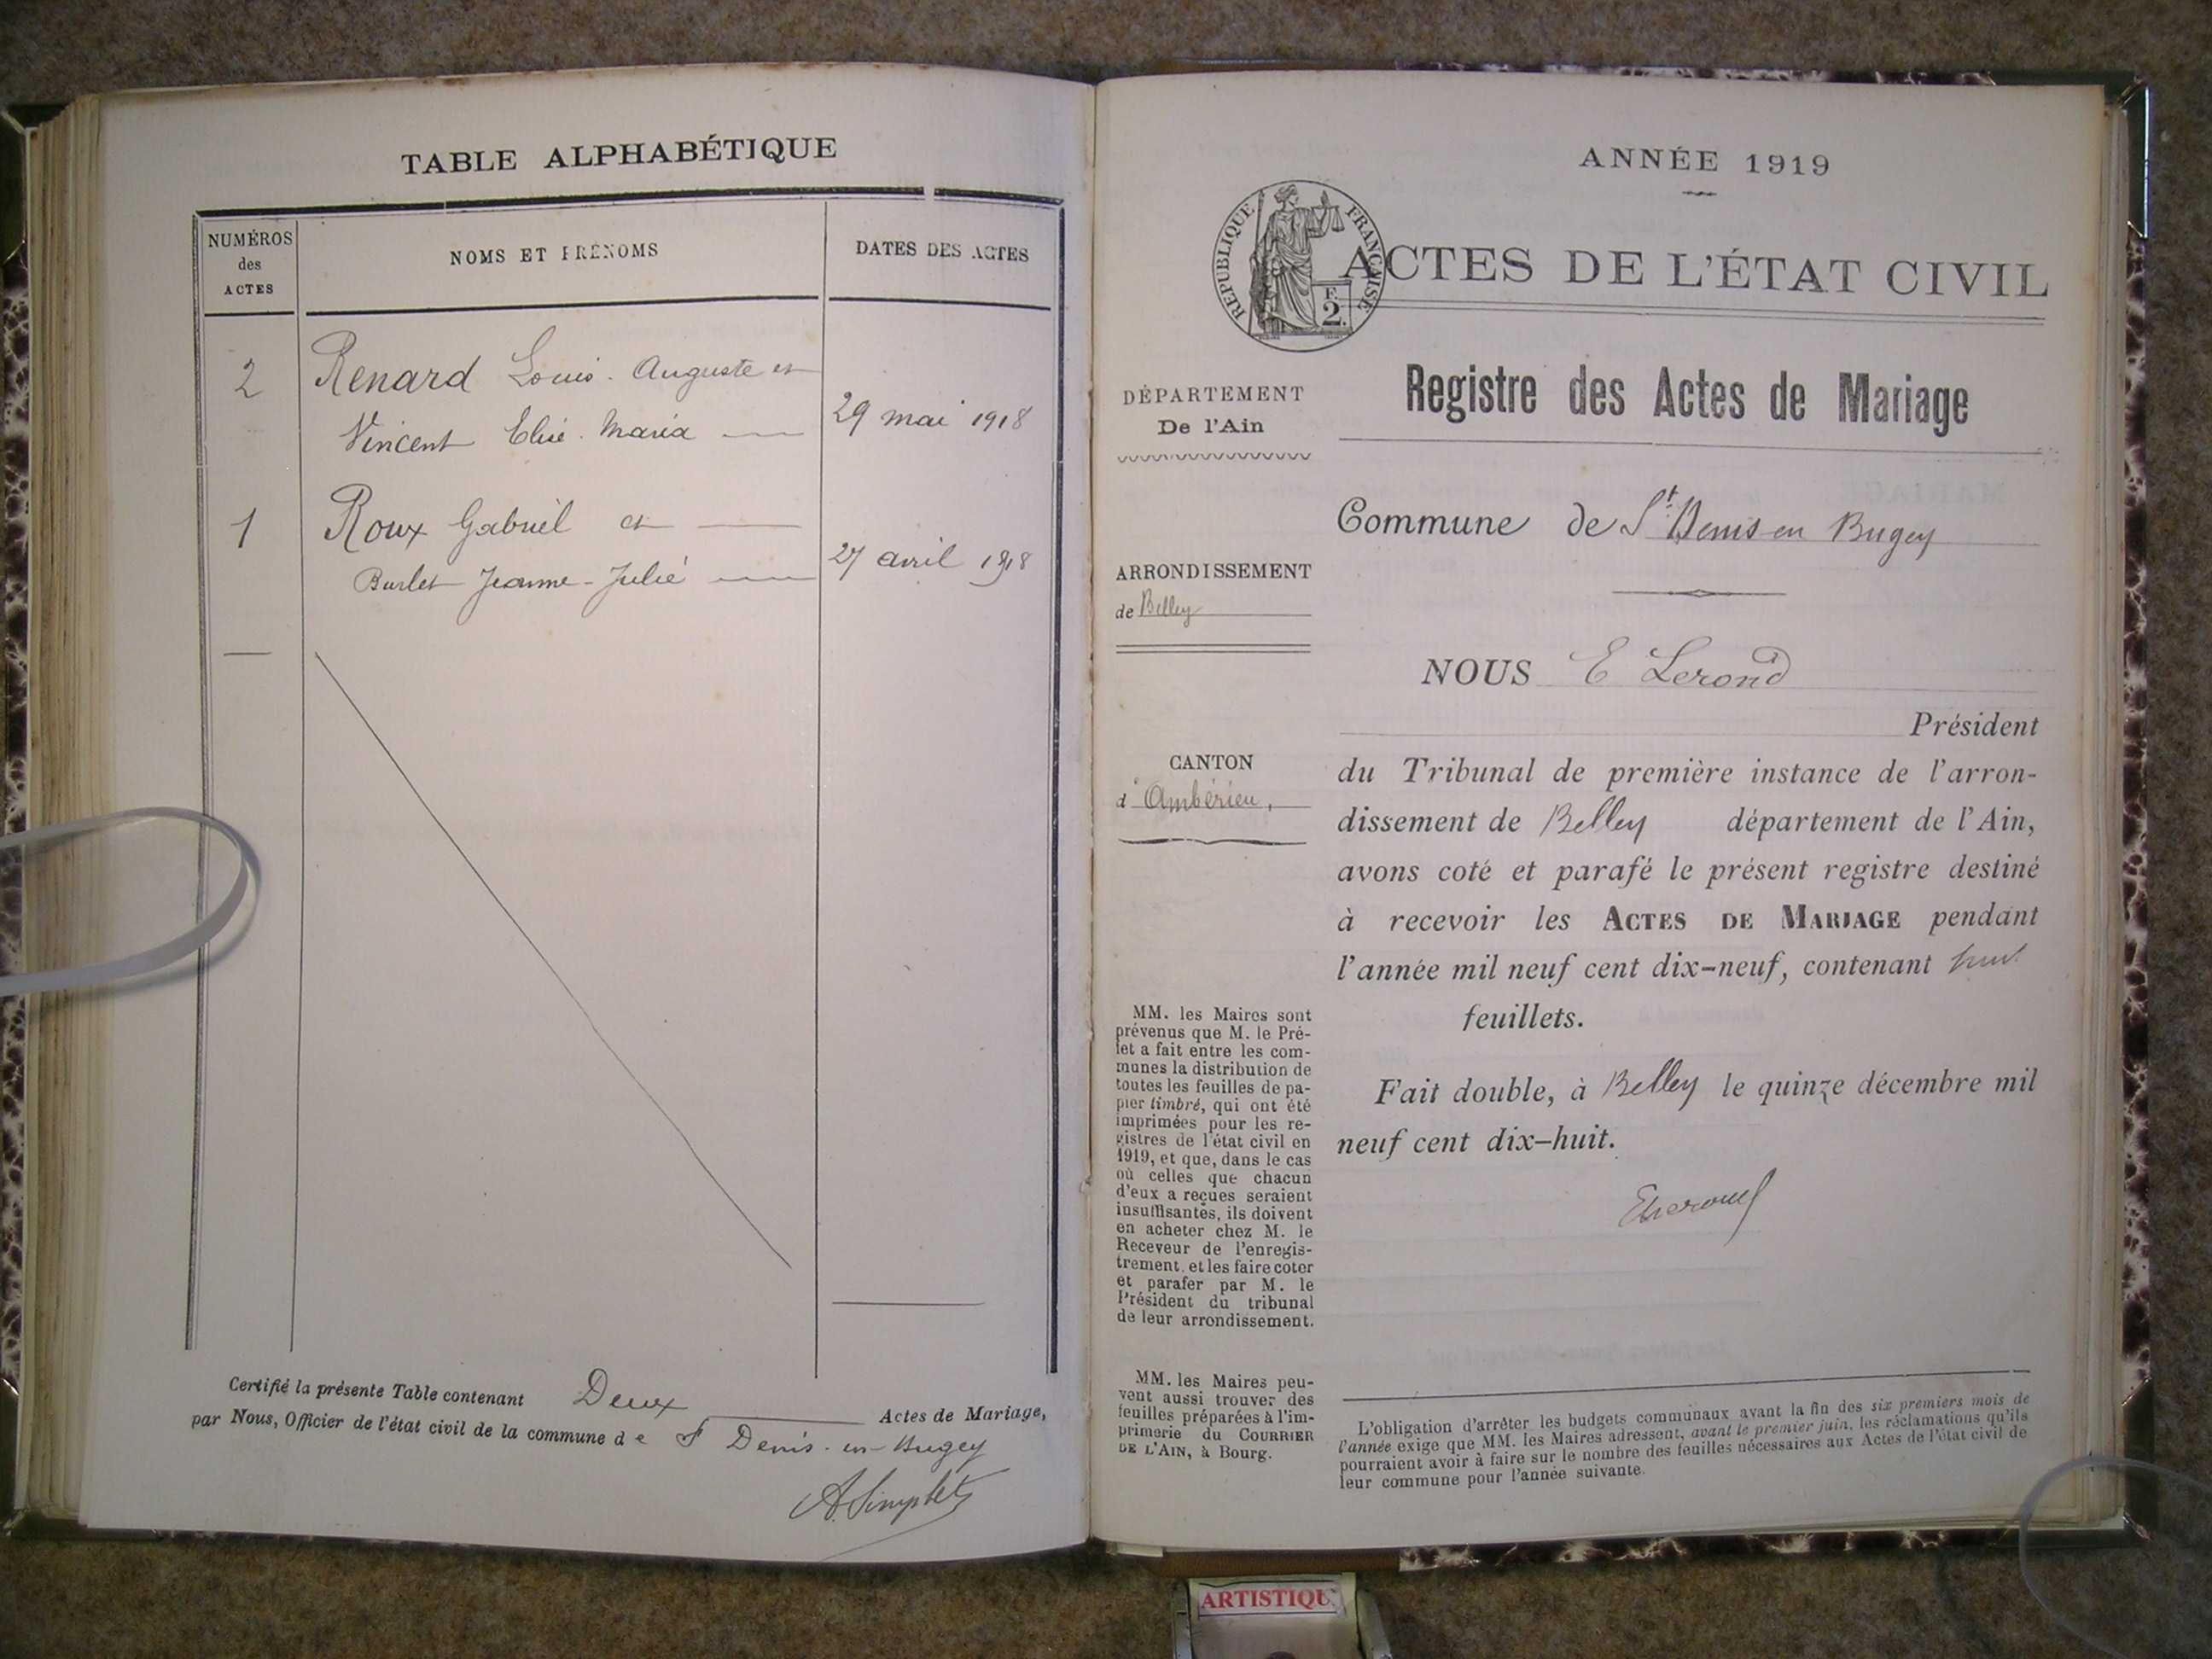 TABLE ALPHABÉTIQUE
NUMÉROS
des
ACTES
NOMS ET PRÉNOMS
DATES DES ACTES
2
Renard Louis. Auguste et
Vincent Elie. Maria
29 mai 1918
1
Roux Gabriel et
Burlet Jeanne-Julie
27 avril 1918
Certifié la présente Table contenant Deux Actes de Mariage,
par Nous, Officier de l'état civil de la commune de St Denis-en-Bugey
ANNÉE 1919
RÉPUBLIQUE FRANÇAISE
F.
2.
ACTES DE L'ÉTAT CIVIL
Registre des Actes de Mariage
DÉPARTEMENT
De l'Ain
ARRONDISSEMENT
de Belley
CANTON
d'Ambérieu,
MM. les Maires sont
prévenus que M. le Pré-
fet a fait entre les com-
munes la distribution de
toutes les feuilles de pa-
pier timbré, qui ont été
imprimées pour les re-
gistres de l'état civil en
1919, et que, dans le cas
où celles que chacun
d'eux a reçues seraient
insuffisantes, ils doivent
en acheter chez M. le
Receveur de l'enregis-
trement, et les faire coter
et parafer par M. le
Président du tribunal
de leur arrondissement.
MM. les Maires peu-
vent aussi trouver des
feuilles préparées à l'im-
primerie du COURRIER
DE L'AIN, à Bourg.
Commune de St Denis en Bugey
NOUS E Lerond
Président
du Tribunal de première instance de l'arron-
dissement de Belley département de l'Ain,
avons coté et parafé le présent registre destiné
à recevoir les ACTES DE MARIAGE pendant
l'année mil neuf cent dix-neuf, contenant
feuillets.
Fait double, à Belley le quinze décembre mil
neuf cent dix-huit.
ELerond
L'obligation d'arrêter les budgets communaux avant la fin des six premiers mois de
l'année exige que MM. les Maires adressent, avant le premier juin, les réclamations qu'ils
pourraient avoir à faire sur le nombre des feuilles nécessaires aux Actes de l'état civil de
leur commune pour l'année suivante.
ARTISTIQU